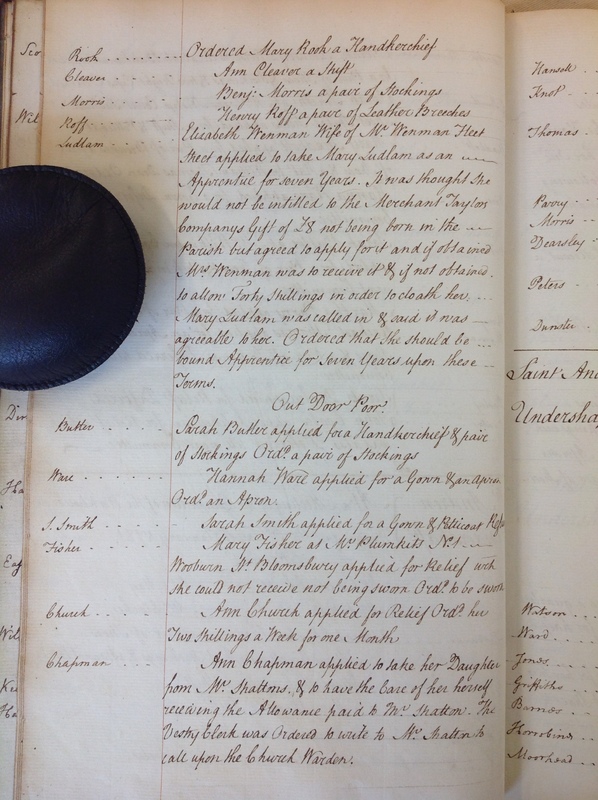 Sco
Rook ......... Ordered Mary Rook a Handkerchief
Cleaver ..... Ann Cleaver a Shift
Morris ..... Benj: Morris a pair of Stockings
Wil
Roff ..... Henry Roff a pair of Leather Breeches
Ludlam ..... Elizabeth Wenman Wife of Mr Wenman Fleet
Street applied to take Mary Ludlam as an
Apprentice for seven Years. It was thought She
would not be intitled to the Merchant Taylors
Companys Gift of £8 not being born in the
Parish but agreed to apply for it and if obtained
Mrs Wenman was to receive it & if not obtained
to allow Forty Shillings in order to cloath her,
Mary Ludlam was called in & said it was
agreeable to her. Ordered that She should be
bound Apprentice for Seven Years upon these
Terms.
Out Door Poor.
Butler ..... Sarah Butler applied for a Handkerchief & pair
of Stockings Ord.d a pair of Stockings
Ware ..... Hannah Ware applied for a Gown & an Apron
Ord.d an Apron.
S. Smith ..... Sarah Smith applied for a Gown & Petticoat
Fisher ..... Mary Fisher at Mr Plumkits No. 1
Wooburn St Bloomsbury applied for Relief wch
she could not receive not being sworn Ord.d to be sworn
Church ..... Ann Church applied for Relief Ord.d her
Two Shillings a Week for one Month
Chapman ..... Ann Chapman applied to take her Daughter
from Mrs Shattons. & to have the Care of her herself
receiving the Allowance paid to Mrs Shatton. The
Vestry Clerk was Ordered to write to Mrs Shatton to
call upon the Church Warden.
Hansell
Knot
Thomas
Parry
Morris
Dearsley
Peters
Dunster
Saint And
Undershaf
Watson
Ward
Jones
Griffiths
Barnes
Horrobins
Moorhead